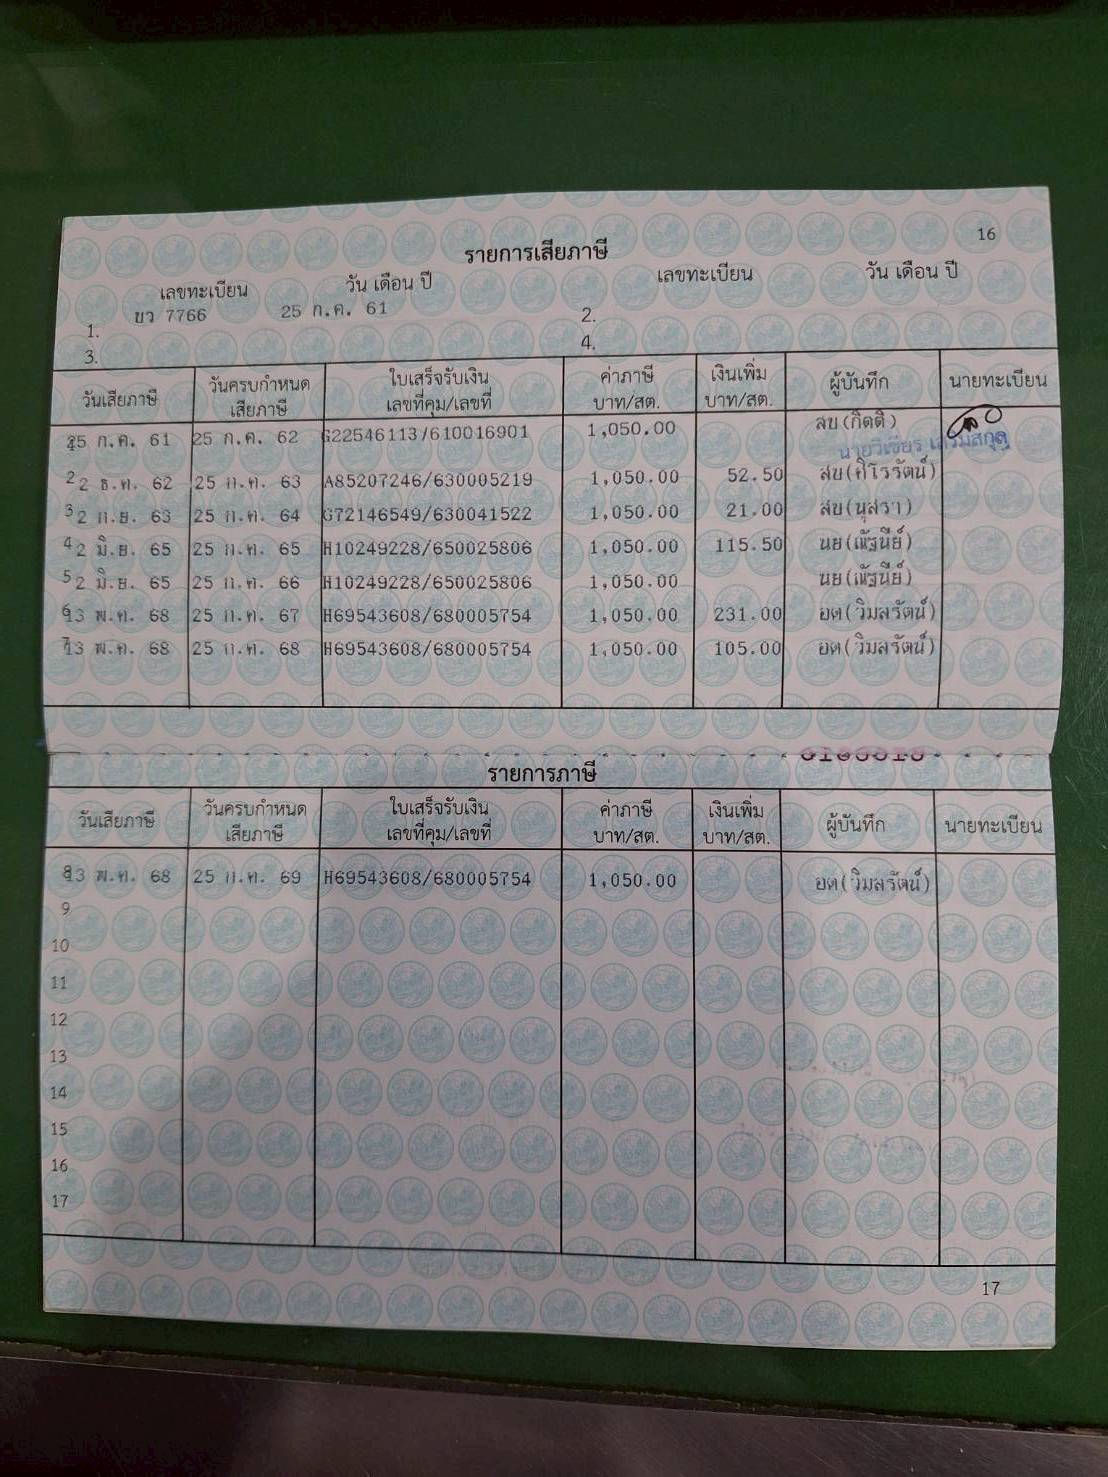 16
รายการเสียภาษี
เลขทะเบียน วัน เดือน ปี เลขทะเบียน วัน เดือน ปี
1. ขว 7766 25 ก.ค. 61 2.
3. 4.
วันเสียภาษี วันครบกำหนดเสียภาษี ใบเสร็จรับเงิน เลขที่คุม/เลขที่ ค่าภาษี บาท/สต. เงินเพิ่ม บาท/สต. ผู้บันทึก นายทะเบียน
25 ก.ค. 61 25 ก.ค. 62 G22546113/610016901 1,050.00 สข(กิตติ)
นายวิเชียร เสริมสกุล
2 2 ธ.ค. 62 25 ก.ค. 63 A85207246/630005219 1,050.00 52.50 สข(ศิโรรัตน์)
3 2 ก.ย. 63 25 ก.ค. 64 G72146549/630041522 1,050.00 21.00 สข(นุสรา)
4 2 มิ.ย. 65 25 ก.ค. 65 H10249228/650025806 1,050.00 115.50 นย(ณัฐนีย์)
5 2 มิ.ย. 65 25 ก.ค. 66 H10249228/650025806 1,050.00 นย(ณัฐนีย์)
6 13 พ.ค. 68 25 ก.ค. 67 H69543608/680005754 1,050.00 231.00 อต(วิมลรัตน์)
7 13 พ.ค. 68 25 ก.ค. 68 H69543608/680005754 1,050.00 105.00 อต(วิมลรัตน์)
รายการภาษี
วันเสียภาษี วันครบกำหนดเสียภาษี ใบเสร็จรับเงิน เลขที่คุม/เลขที่ ค่าภาษี บาท/สต. เงินเพิ่ม บาท/สต. ผู้บันทึก นายทะเบียน
8 13 พ.ค. 68 25 ก.ค. 69 H69543608/680005754 1,050.00 อต(วิมลรัตน์)
9
10
11
12
13
14
15
16
17
17